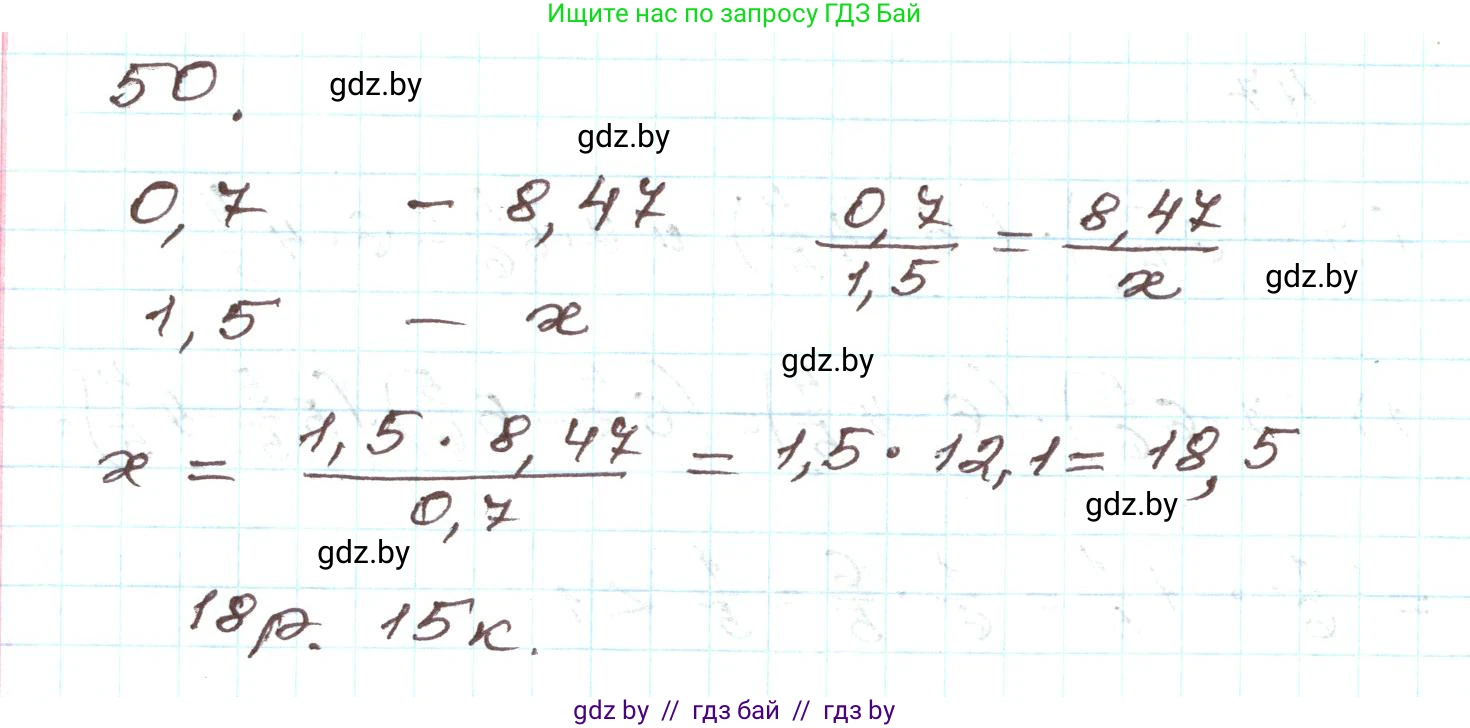 Ищите нас по запросу ГДЗ Бай
50. gdz.by
gdz.by
0,7 - 8,47 0,7/1,5 = 8,47/x
gdz.by
1,5 - x
gdz.by
x = 1,5 · 8,47/0,7 = 1,5 · 12,1 = 18,5
gdz.by
gdz.by
18р. 15к.
gdz by // гдз бай // гдз by